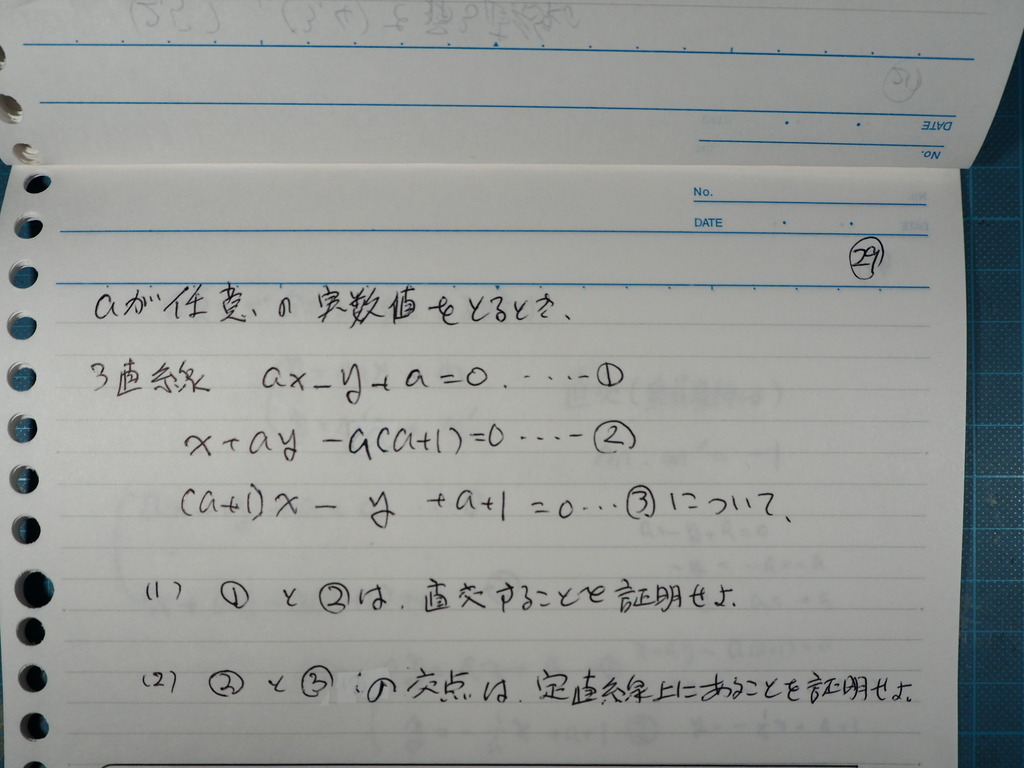 DATE
No.
No.
DATE
29
aが任意の実数値をとるとき、
3直線 ax-y+a=0.……①
x+ay-a(a+1)=0……②
(a+1)x-y+a+1=0…③について、
(1) ①と②は、直交することを証明せよ.
(2) ②と③の交点は、定直線上にあることを証明せよ.